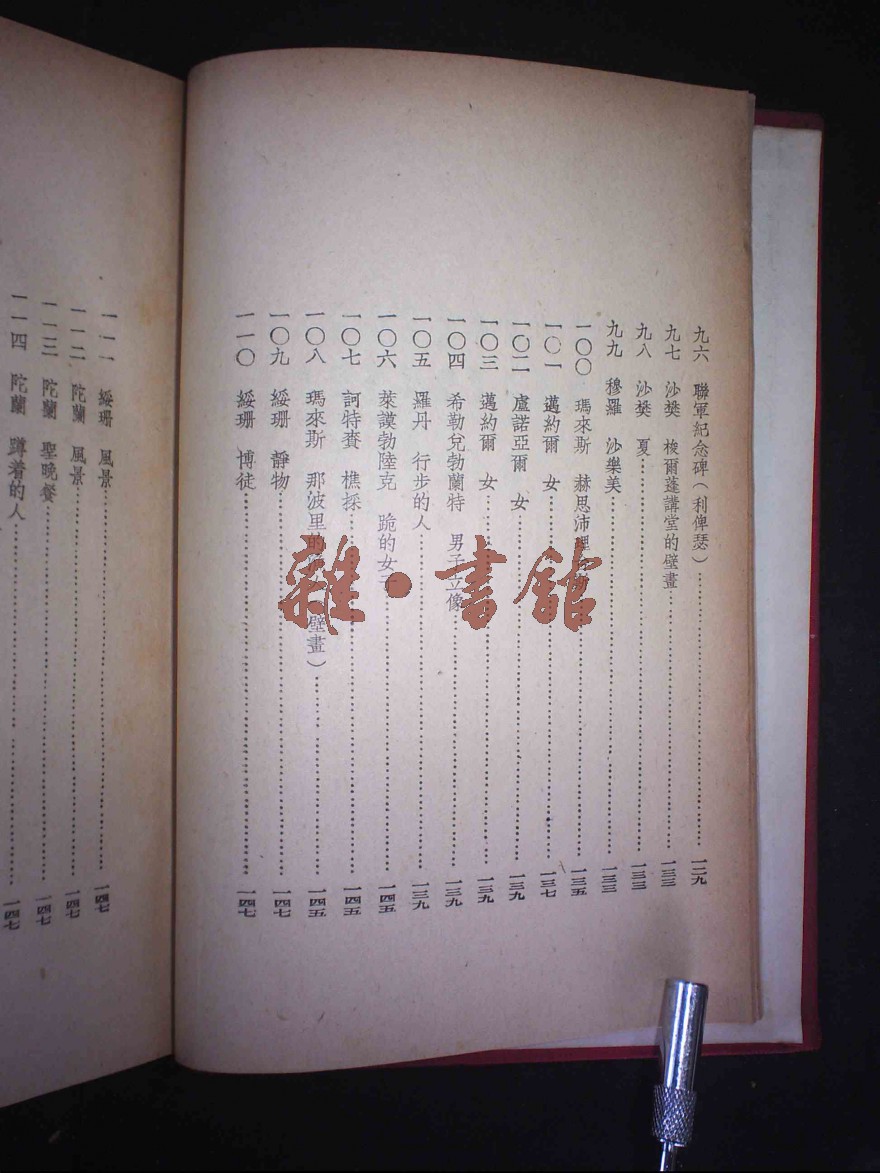 九六 聯軍紀念碑(利俾瑟)……一二九
九七 沙樊 梭爾蓬講堂的壁畫……一三三
九八 沙樊 夏……一三三
九九 穆羅 沙樂美……一三三
一〇〇 瑪來斯 赫思沛理……一三五
一〇一 邁約爾 女……一三七
一〇二 盧諾亞爾 女……一三九
一〇三 邁約爾 女……一三九
一〇四 希勒兌勃蘭特 男子立像……一三九
一〇五 羅丹 行步的人……一三九
一〇六 萊謨勃陸克 跪的女子……一四五
一〇七 訶特賚 樵採……一四五
一〇八 瑪來斯 那波里的 壁畫)……一四五
一〇九 綏珊 靜物……一四七
一一〇 綏珊 博徒……一四七
一一一 綏珊 風景……一四七
一一二 陀蘭 風景……一四七
一一三 陀蘭 聖晚餐……一四七
一一四 陀蘭 蹲着的人……一四七
雜·書館